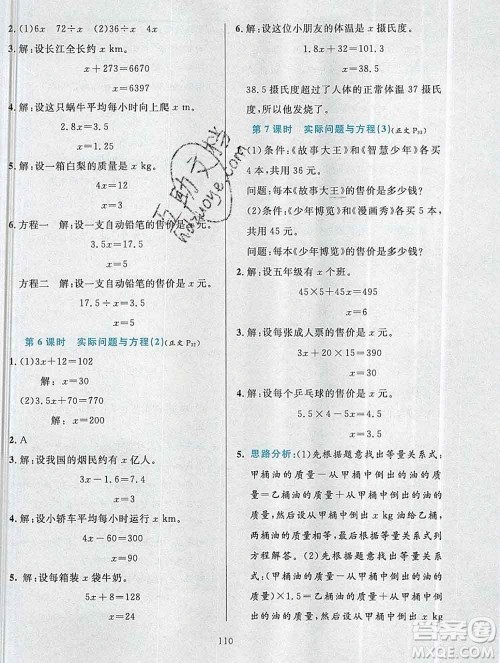 2. (1)6x　72÷x　(2)36÷x　4x
3. 解:设长江全长约 x km。
x+273=6670
x=6397
4. 解:设这只蜗牛平均每小时向上爬 x m。
2.8x=3.5
x=1.25
5. 解:设一箱白梨的质量是 x kg。
4x=32
x=8
6. 方程一　解:设一支自动铅笔的售价是 x 元。
3.5x=17.5
x=5
方程二　解:设一支自动铅笔的售价是 x 元。
17.5÷x=3.5
x=5
第 6 课时　实际问题与方程(2)(正文 P₃₂)
1. (1)3x+12=102
解:　x=30
(2)3.5x-370=330
解:　x=200
2. A
3. 解:设我国的烟民约有 x 亿。
4x-0.5=13.5
x=3.5
4. 解:设小轿车平均每小时运行 x km。
4x-60=300
x=90
5. 解:设每箱装 x 袋牛奶。
5x+8=128
x=24
6. 解:设这位小朋友的体温是 x 摄氏度。
1.8x+32=101.3
x=38.5
38.5 摄氏度超过了人体的正常体温 37 摄氏
度,所以他发烧了。
第 7 课时　实际问题与方程(3)(正文 P₃₃)
1. (1)条件:《故事大王》和《智慧少年》各买
4 本,共用 36 元。
问题:每本《故事大王》的售价是多少钱?
(2)条件:《少年博览》和《漫画秀》各买
5 本,共用 40 元。
问题:每本《少年博览》的售价是多少钱?
2. 解:设五年级有 x 个班。
45×5+45x=360
x=3
3. 解:设每张成人票的售价是 x 元。
30x+9x=1170
x=30
4. 解:设每个乒乓球的售价是 x 元。
27.5×4-5x=95
x=3
5. 思路分析:(1)先根据题意找出等量关系式:
甲桶油的质量-从甲桶中倒出油的质
量=乙桶油的质量+从甲桶中倒出油的
质量,然后设从甲桶中倒出 x kg油,再
根据等量关系式列出方程,最后求出方
程的解即可。(2)先根据题意找出等量
关系式:(甲桶油的质量-从甲桶中倒出
油的质量)×1.5=乙桶油的质量+从甲桶
中倒出油的质量,然后设从甲桶中倒出 x kg
110
hazuoye.com
MXQE.COM